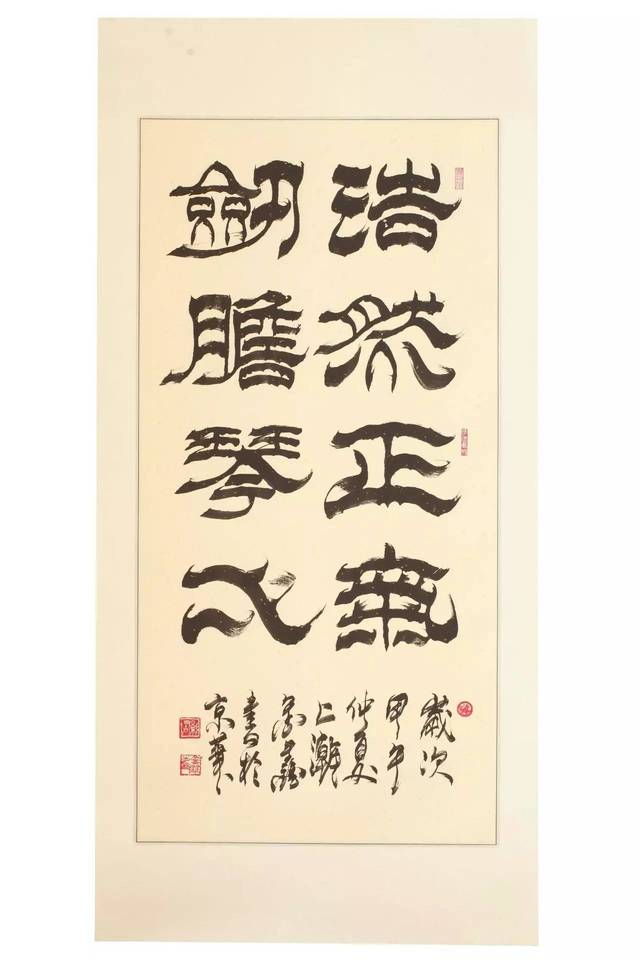 浩然正氣
劍膽琴心
歲次
甲午
仲夏
上澣
書於
京華